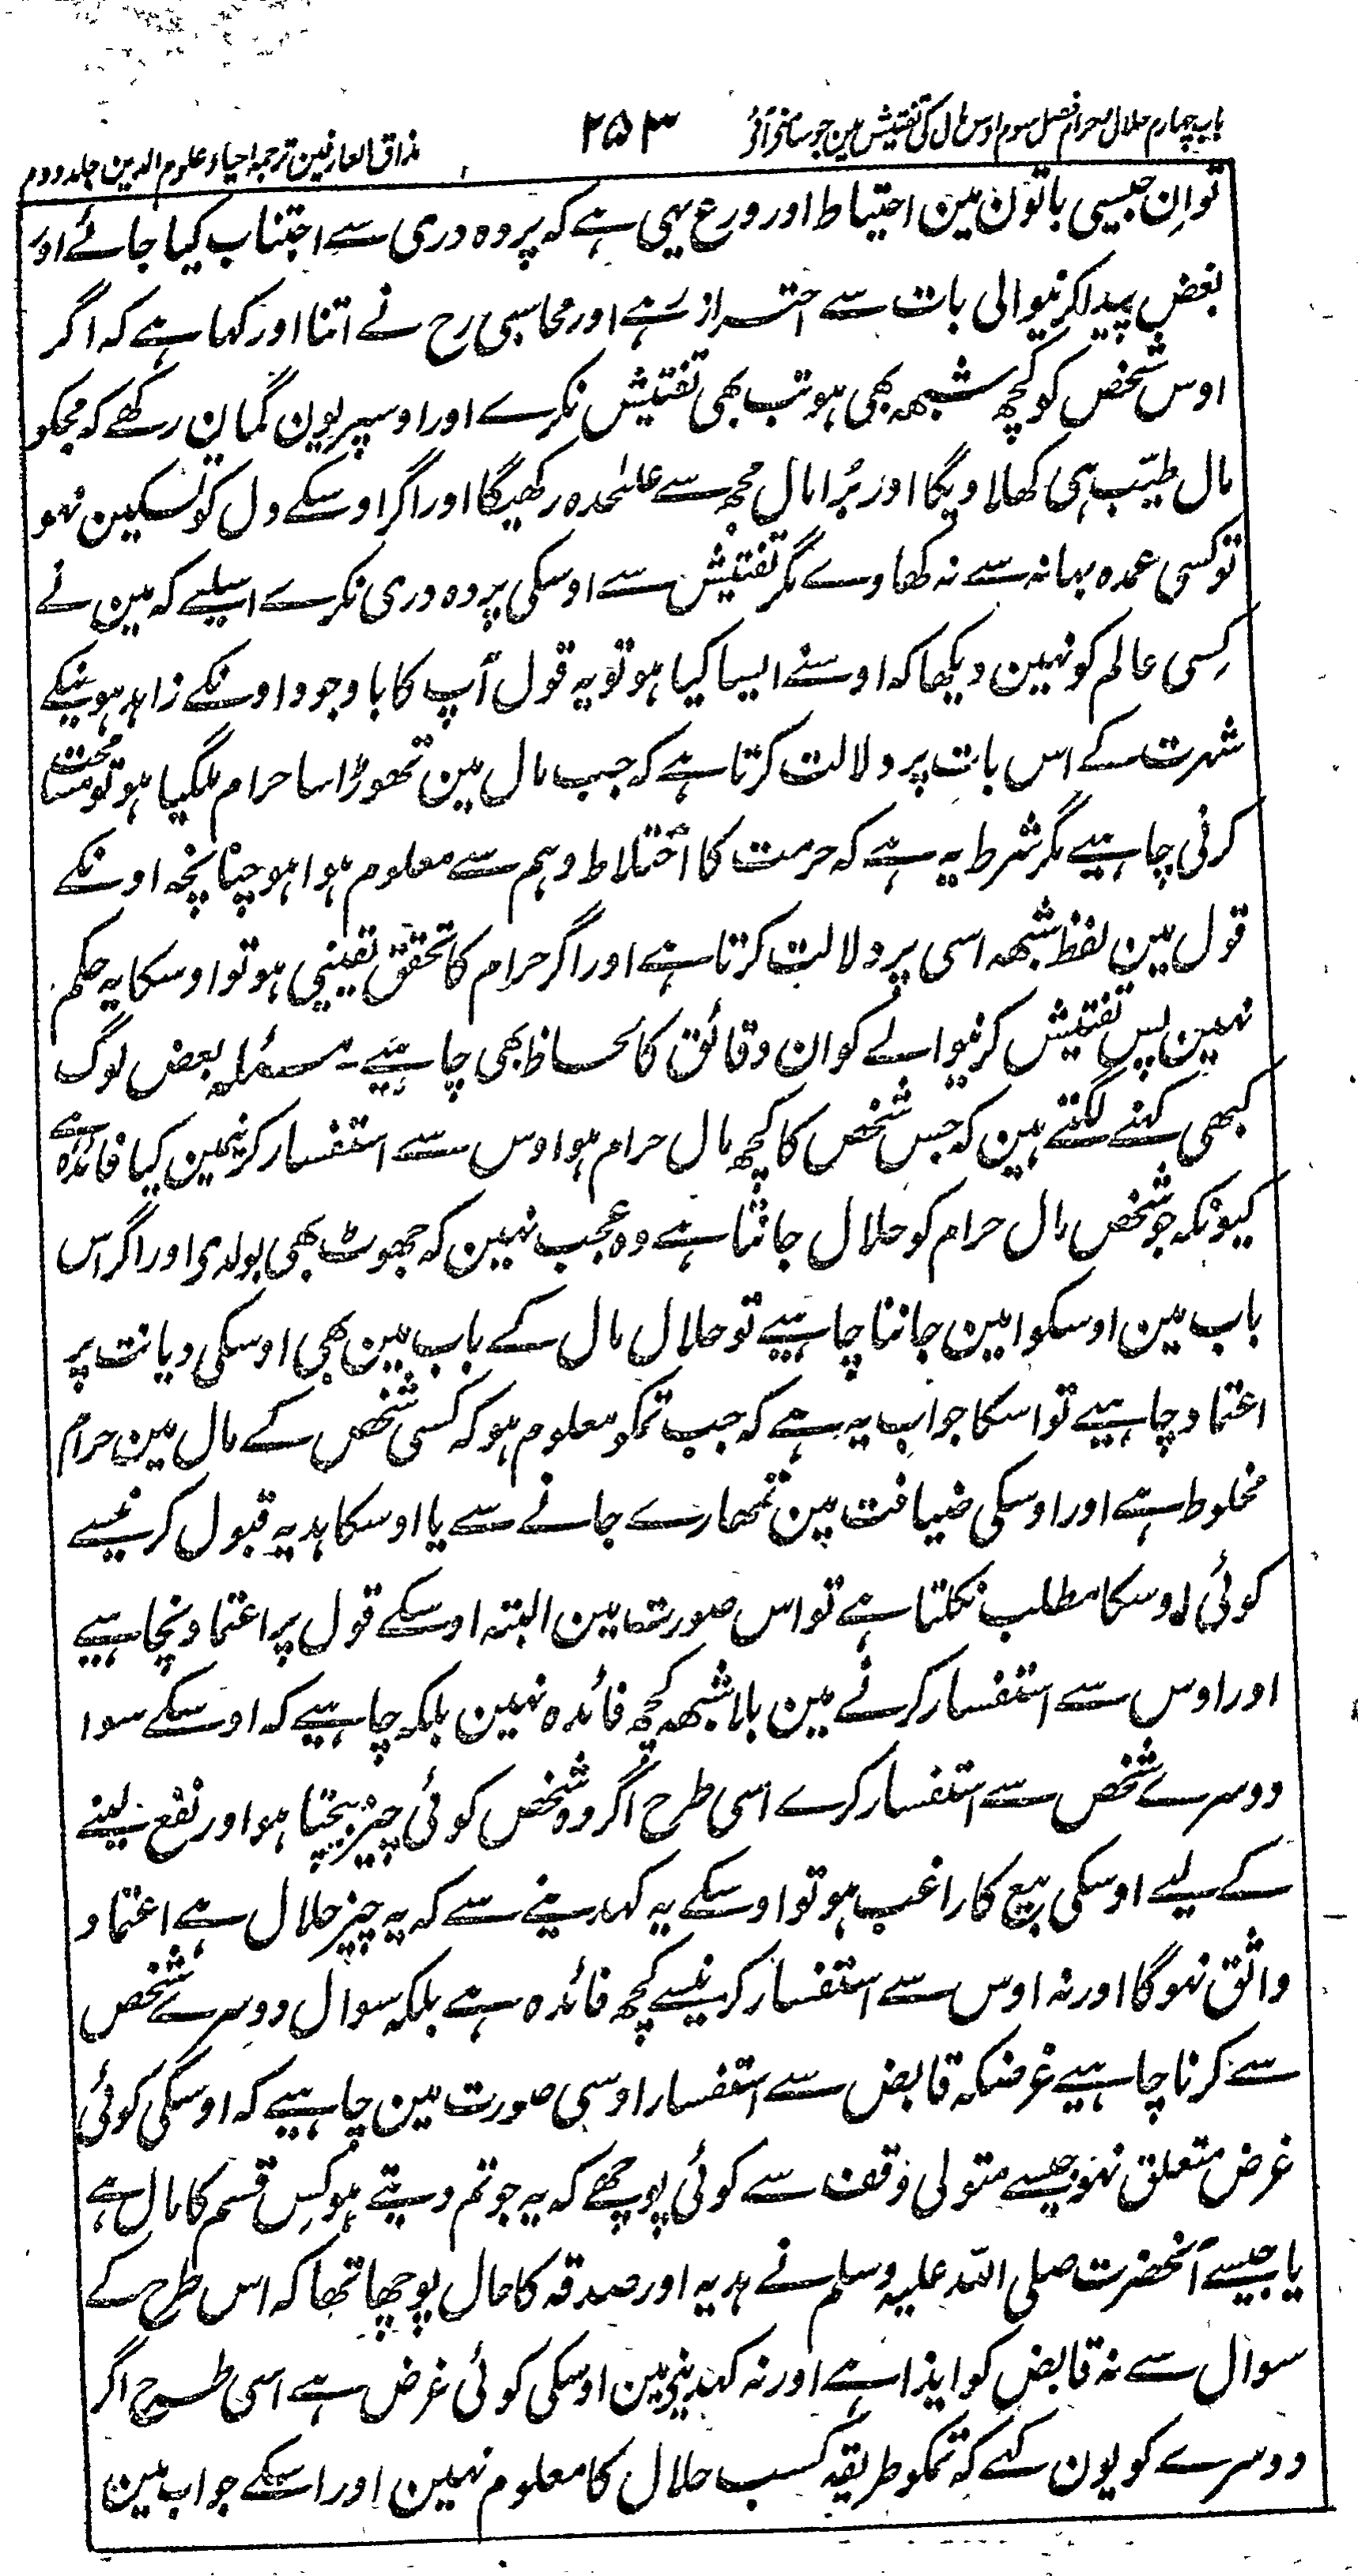 باب چہارم حلال و حرام فصل سوم اوس مال کی تفتیش مین جو سامنے آئے
۲۵۳
مذاق العارفین ترجمہ احیاء علوم الدین جلد دوم
تو ان جیسی باتون مین احتیاط اور ورع یہی ہے کہ پردہ دری سے اجتناب کیا جائے اور
بغض پیدا کرنیوالی بات سے احتراز ہے اور محاسبی رح نے اتنا اور کہا ہے کہ اگر
اوس شخص کو کچھ شبہہ بھی ہو تب بھی تفتیش نکرے اور اوسپر یون گمان رکھے کہ مجکو
مال طیّب ہی کھلاویگا اور بُرا مال مجھ سے علٰحدہ رکھیگا اور اگر اوسکے دل کو تسکین نہو
تو کسی عمدہ بہانہ سے نہ کھاوے مگر تفتیش سے اوسکی پردہ دری نکرے اسلیے کہ مین نے
کِسی عالم کو نہین دیکھا کہ اوسنے ایسا کیا ہو تو یہ قول آپ کا باوجود اونکے زاہد ہونیکے
شہرت کے اس بات پر دلالت کرتا ہے کہ جب مال مین تھوڑا سا حرام ملگیا ہو تو مسامحت
کرنی چاہیے مگر شرط یہ ہے کہ حرمت کا اختلاط وہم سے معلوم ہوا ہو چنانچہ اونکے
قول مین لفظ شبہہ اسی پر دلالت کرتا ہے اور اگر حرام کا تحقق یقینی ہو تو اوسکا یہ حکم
نہین پس تفتیش کرنیوالے کو ان دقائق کا لحاظ بھی چاہیے۔ مسئلہ بعض لوگ
کبھی کہنے لگتے ہین کہ جس شخص کا کچھ مال حرام ہو اوس سے استفسار کرنیمین کیا فائدہ ہے
کیونکہ جو شخص مال حرام کو حلال جانتا ہے وہ عجب نہین کہ جھوٹ بھی بولدی اور اگر اس
باب مین اوسکو امین جاننا چاہیے تو حلال مال کے باب مین بھی اوسکی دیانت پر
اعتماد چاہیے تو اسکا جواب یہ ہے کہ جب تمکو معلوم ہو کہ کسی شخص کے مال مین حرام
مخلوط ہے اور اوسکی ضیافت مین تمھارے جانے سے یا اوسکا ہدیہ قبول کرنیسے
کوئی اوسکا مطلب نکلتا ہے تو اس صورت مین البتہ اوسکے قول پر اعتماد نچاہیے
اور اوس سے استفسار کرنے مین بلا شبہہ کچھ فائدہ نہین بلکہ چاہیے کہ اوسکے سوا
دوسرے شخص سے استفسار کرے اسی طرح اگر وہ شخص کوئی چیز بیچتا ہو اور نفع لینے
کے لیے اوسکی بیع کا راغب ہو تو اوسکے یہ کہدینے سے کہ یہ چیز حلال ہے اعتماد
واثق نہوگا اور نہ اوس سے استفسار کرنیسے کچھ فائدہ ہے بلکہ سوال دوسرے شخص
سے کرنا چاہیے غرضکہ قابض سے استفسار اوسی صورت مین چاہیے کہ اوسکی کوئی
غرض متعلق نہو جیسے متولی وقف سے کوئی پوچھے کہ یہ جو تم دیتے ہو کِس قسم کا مال ہے
یا جیسے آنحضرت صلی اللہ علیہ وسلم نے ہدیہ اور صدقہ کا حال پوچھا تھا کہ اس طرح کے
سوال سے نہ قابض کو ایذا ہے اور نہ کہدینیمین اوسکی کوئی غرض ہے اسی طرح اگر
دوسرے کو یون کہے کہ تمکو طریقہ کسب حلال کا معلوم نہین اور اسکے جواب مین